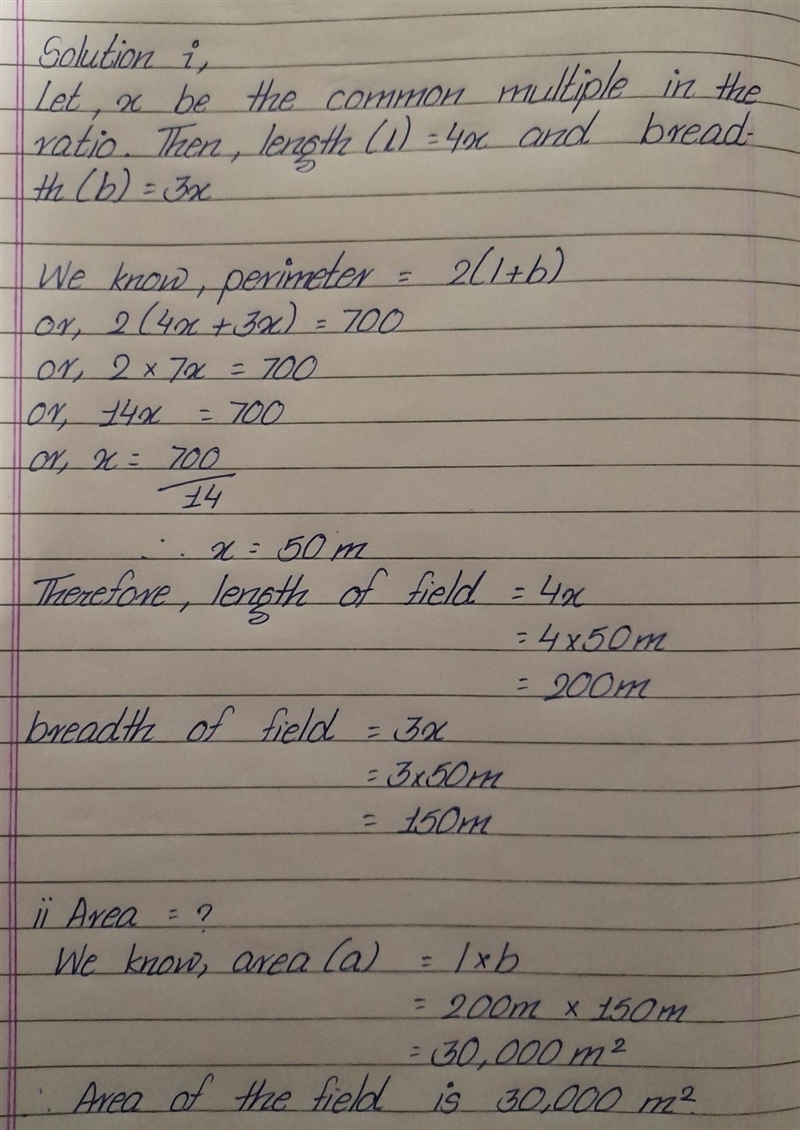 Solution i,
Let, x be the common multiple in the
ratio. Then, length (l) = 4x and bread-
th (b) = 3x
We know, perimeter = 2(l+b)
or, 2(4x + 3x) = 700
or, 2 × 7x = 700
or, 14x = 700
or, x = 700
14
∴ x = 50 m
Therefore, length of field = 4x
= 4 × 50 m
= 200 m
breadth of field = 3x
= 3 × 50 m
= 150 m
ii Area = ?
We know, area (a) = l × b
= 200m × 150 m
= 30,000 m²
∴ Area of the field is 30,000 m².